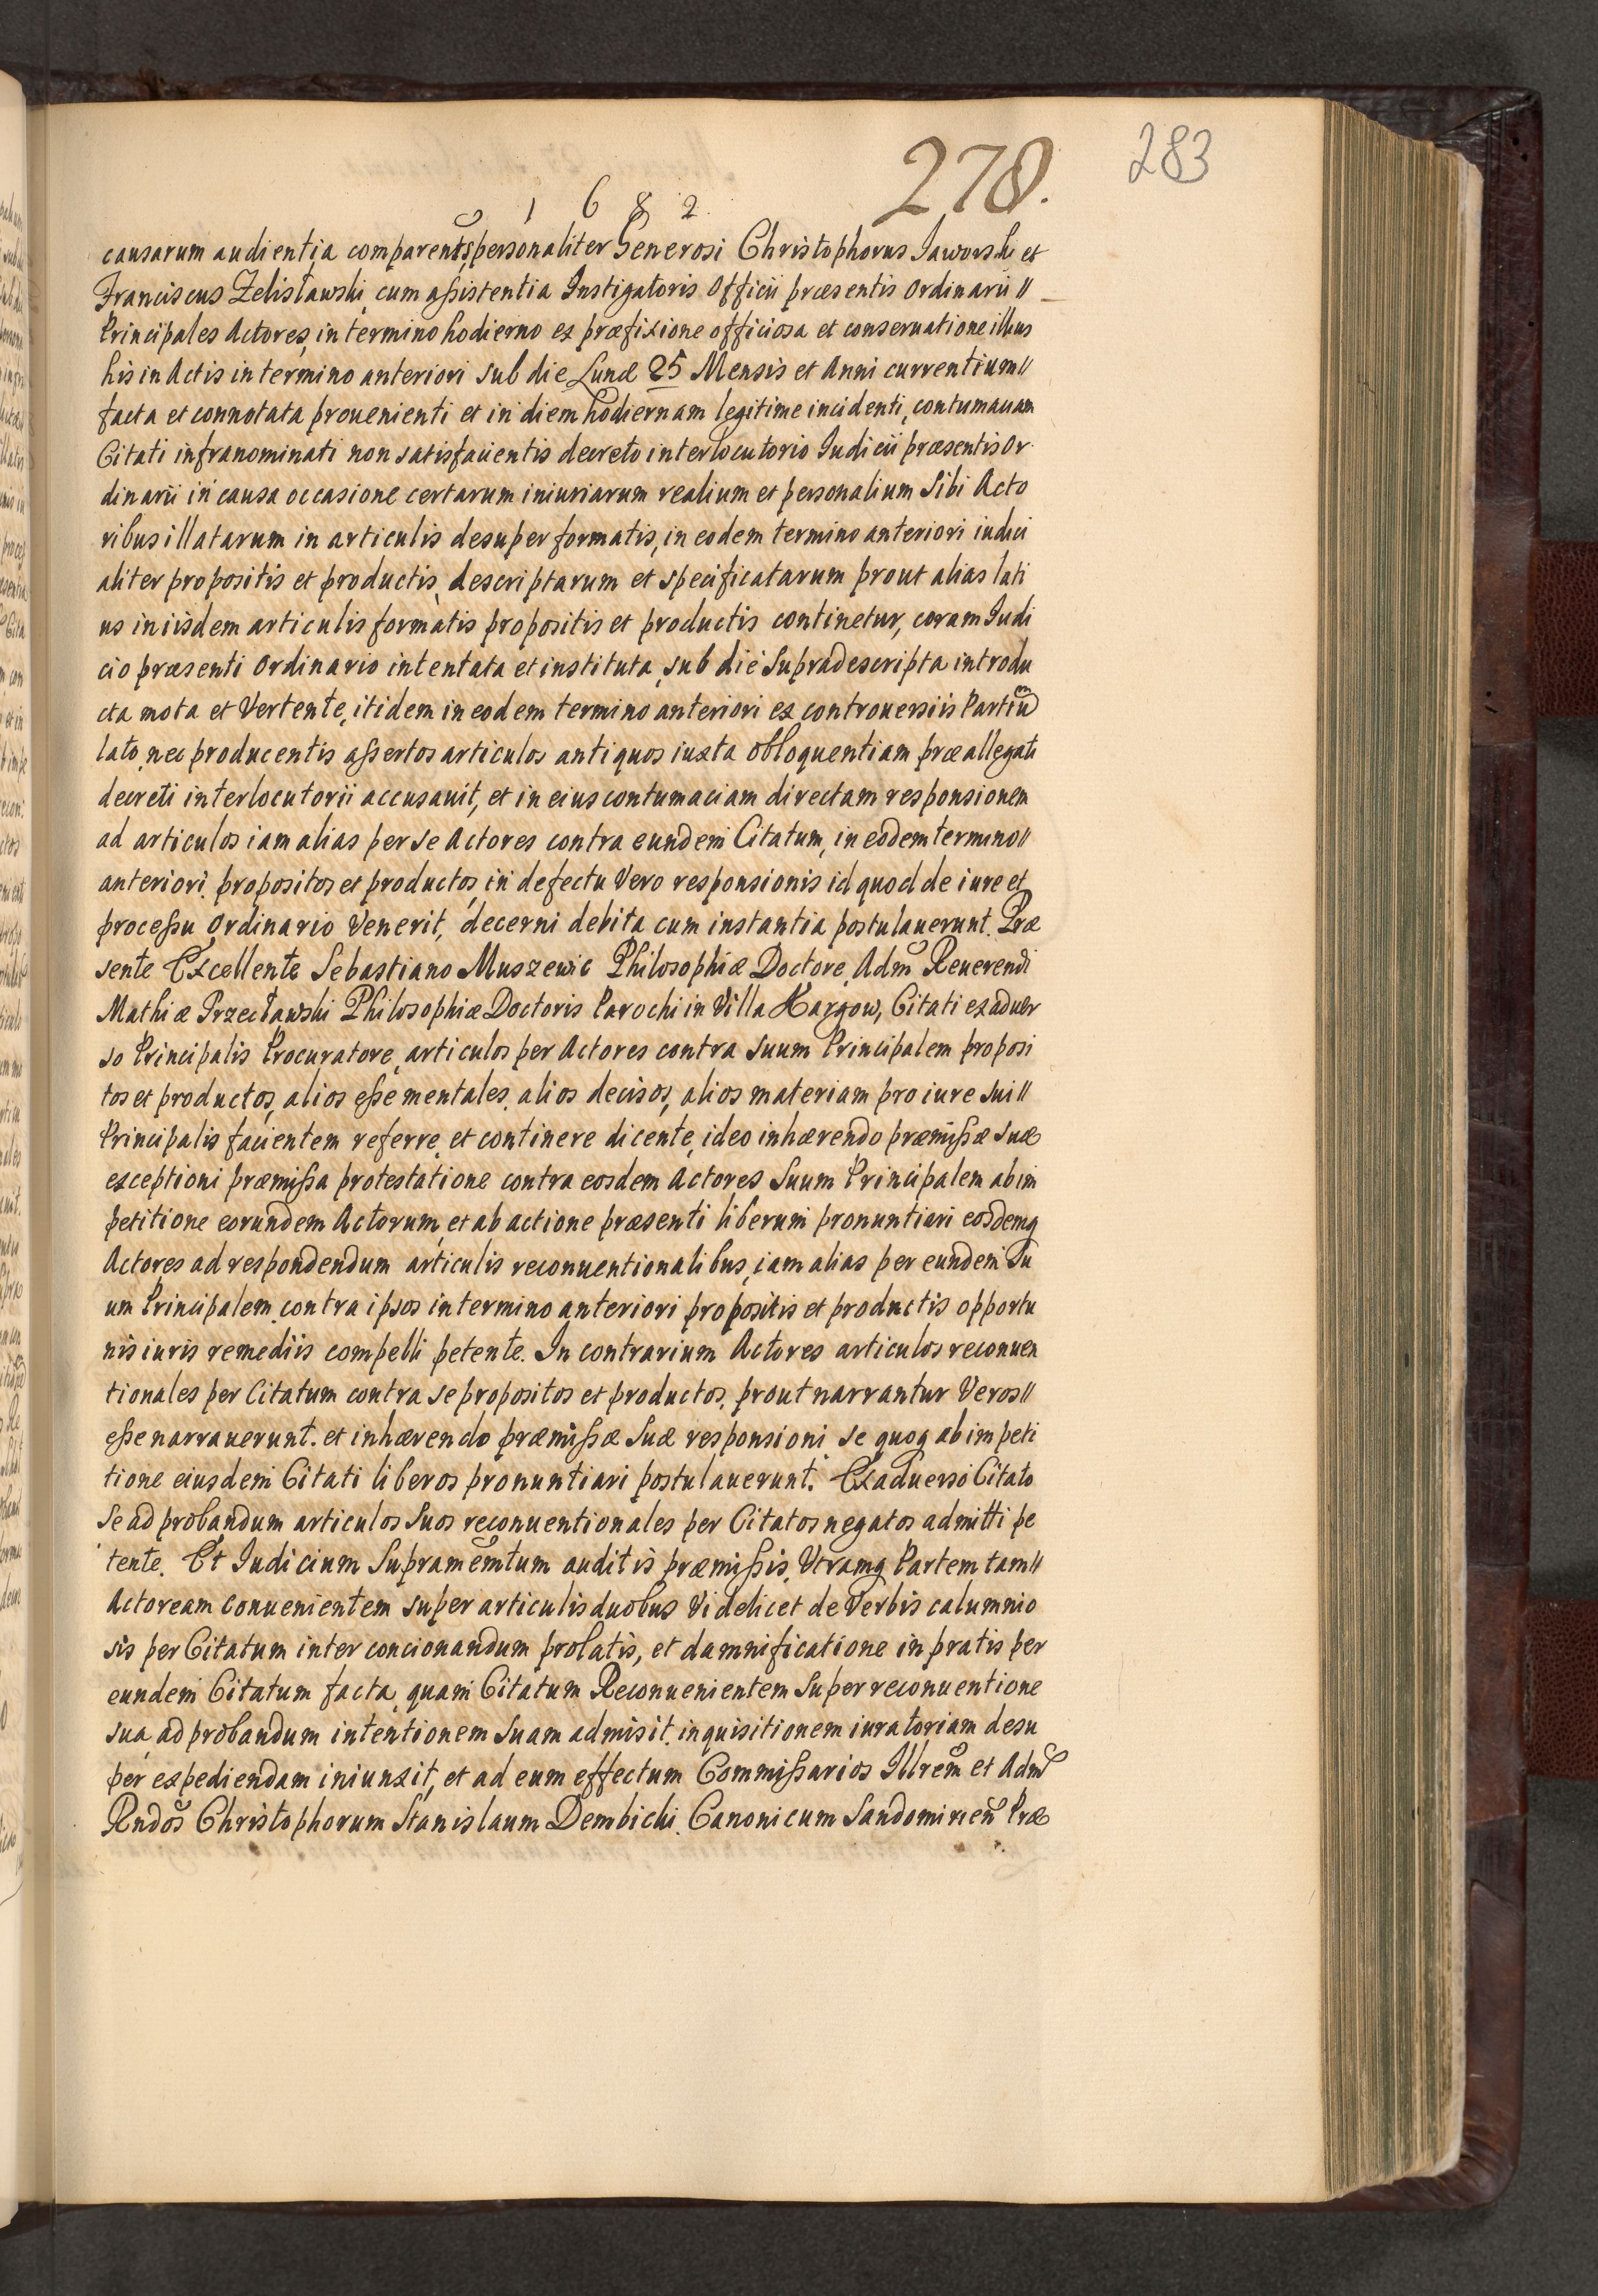 283
278.
1 6 8 2.
causarum audientia comparentes personaliter Generosi Christophorus Jaworski et
Franciscus Zelisławski cum assistentia Instigatoris Officii præsentis Ordinarii //
Principales Actores, in termino hodierno ex præfixione officiosa et conseruatione illius
his in Actis in termino anteriori sub die Lunæ 25 Mensis et Anni currentium //
facta et connotata prouenienti et in diem hodiernam legitime incidenti, contumaciam
Citati infranominati non satisfacientis decreto interlocutorio Iudicii præsentis Or
dinarii in causa occasione certarum iniuriarum realium et personalium sibi Acto
ribus illatarum in articulis desuper formatis, in eodem termino anteriori iudici
aliter propositis et productis, descriptarum et specificatarum prout alias lati
us in iisdem articulis formatis propositis et productis continetur, coram Iudi
cio præsenti Ordinario intentata et instituta, sub die supradescripta introdu
cta mota et Vertente, itidem in eodem termino anteriori ex controuersiis Partium
lato, nec producentis assertos articulos antiquos iuxta obloquentiam præallegati
decreti interlocutorii accusauit, et in eius contumaciam directam responsionem
ad articulos iam alias per se Actores contra eundem Citatum, in eodem termino //
anteriori propositos et productos, in defectu Vero responsionis id quod de iure et
processu Ordinario Venerit, decerni debita cum instantia postulauerunt. Præ
sente Excellente Sebastiano Muszewic Philosophiæ Doctore, Adm̃ Reuerendi
Mathiæ Przecławski Philosophiæ Doctoris Parochi in Villa Hargow, Citati exaduer
so Principalis Procuratore, articulos per Actores contra suum Principalem proposi
tos et productos, alios esse mentales, alios decisos, alios materiam pro iure sui //
Principalis facientem referre et continere dicente, ideo inhærendo præmissæ suæ
exceptioni præmissa protestatione contra eosdem Actores Suum Principalem ab im
petitione eorundem Actorum, et ab actione præsenti liberum pronuntiari eosdemq
Actores ad respondendum articulis reconuentionalibus, iam alias per eundem Su
um Principalem contra ipsos in termino anteriori propositis et productis opportu
nis iuris remediis compelli petente. In contrarium Actores articulos reconuen
tionales per Citatum contra se propositos et productos, prout narrantur Veros //
esse narrauerunt. et inhærendo præmissæ Suæ responsioni se quoq ab impeti
tione eiusdem Citati liberos pronuntiari postulauerunt. Exaduerso Citato
se ad probandum articulos Suos reconuentionales per Citatos negatos admitti pe
tente. Et Iudicium Supramem̃tum auditis præmissis, Vtramq Partem tam //
Actoream conuenientem super articulis duobus Videlicet de Verbis calumnio
sis per Citatum inter concionandum prolatis, et damnificatione in pratis per
eundem Citatum facta, quam Citatum Reconuenientem super reconuentione
sua, ad probandum intentionem suam admisit. inquisitionem iuratoriam desu
per expediendam iniunxit, et ad eum effectum Commissarios Illrem̃ et Adm̃
Rndos̃ Christophorum Stanislaum Dembicki Canonicum Sandomirien̄ Præ